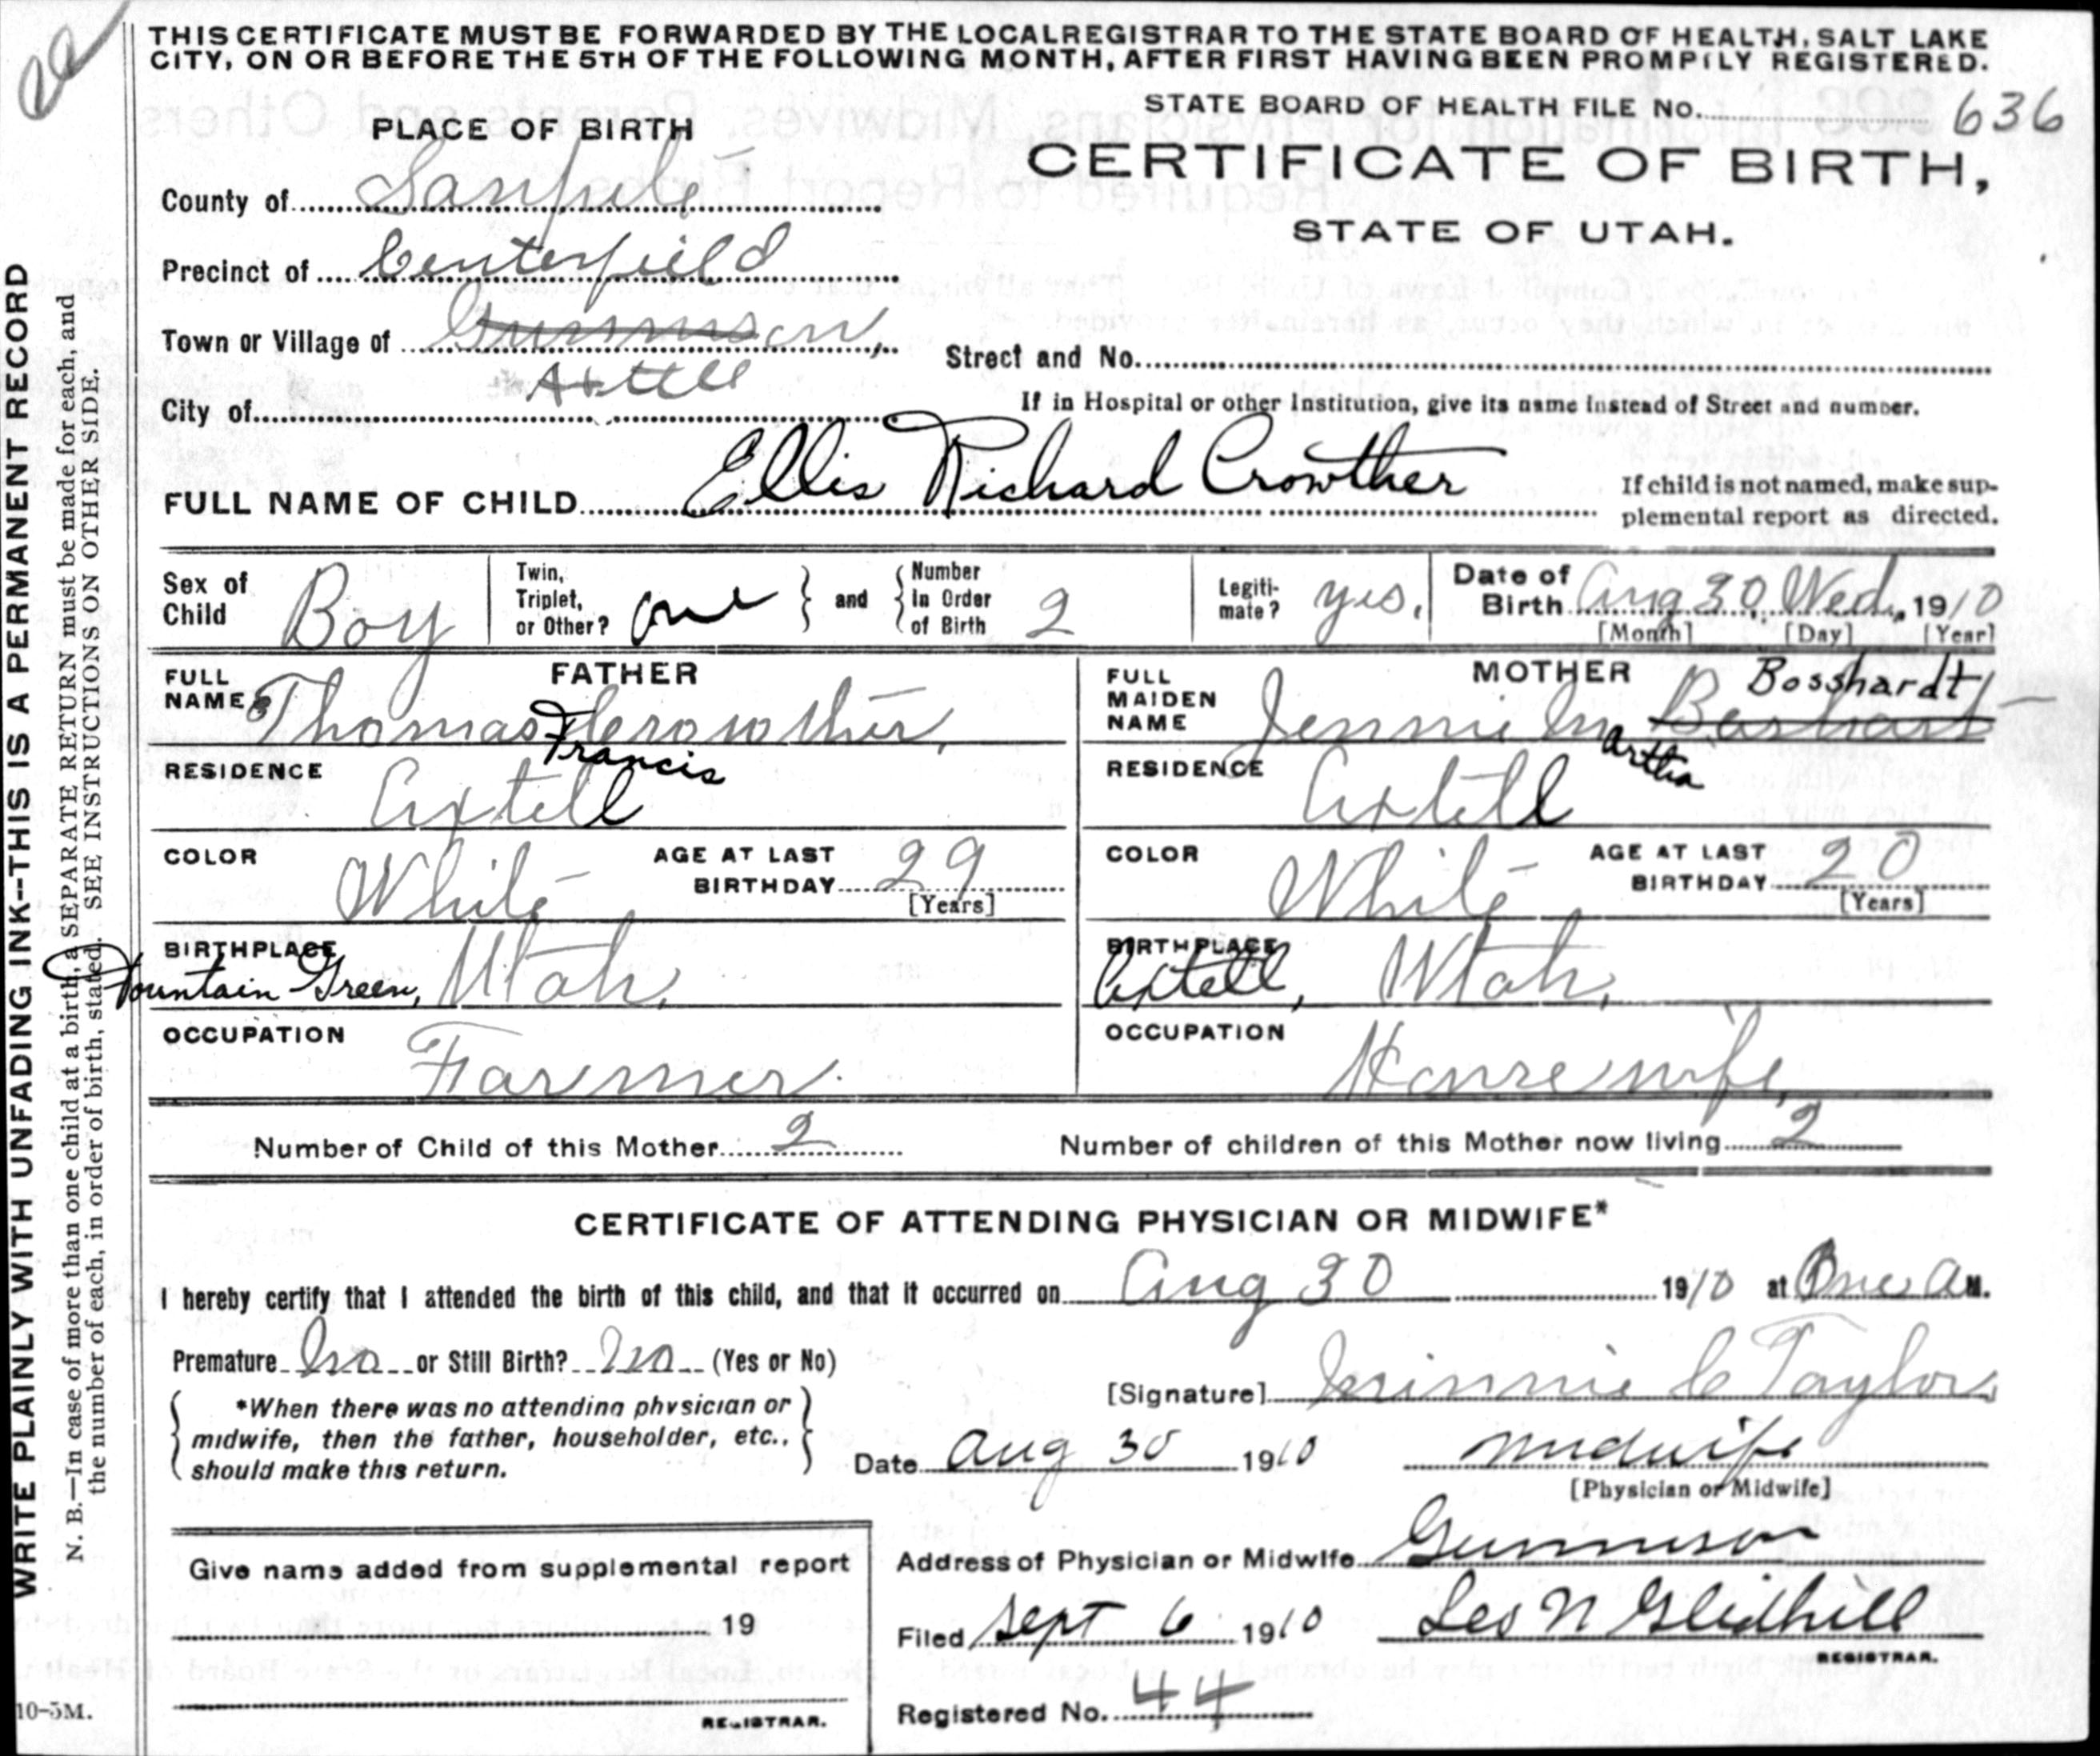 THIS CERTIFICATE MUST BE FORWARDED BY THE LOCAL REGISTRAR TO THE STATE BOARD OF HEALTH, SALT LAKE
CITY, ON OR BEFORE THE 5TH OF THE FOLLOWING MONTH, AFTER FIRST HAVING BEEN PROMPTLY REGISTERED.
STATE BOARD OF HEALTH FILE No. 636
PLACE OF BIRTH
CERTIFICATE OF BIRTH,
STATE OF UTAH.
County of Sanpete
Precinct of Centerfield
Town or Village of Gunnison,
Axtell
Street and No.
City of
If in Hospital or other Institution, give its name instead of Street and number.
FULL NAME OF CHILD Ellis Richard Crowther
If child is not named, make sup-
plemental report as directed.
Sex of Child Boy
Twin, Triplet, or Other? one
and
Number In Order of Birth 2
Legiti-mate? yes.
Date of Birth Aug 30, Wed, 1910
[Month] [Day] [Year]
FATHER
FULL NAME Thomas Francis Crowther.
MOTHER
FULL MAIDEN NAME Jennie Martha Boshart Bosshardt
RESIDENCE Axtell
RESIDENCE Axtell
COLOR White
AGE AT LAST BIRTHDAY 29
[Years]
COLOR White
AGE AT LAST BIRTHDAY 20
[Years]
BIRTHPLACE Fountain Green, Utah.
BIRTHPLACE Axtell, Utah.
OCCUPATION Farmer.
OCCUPATION Housewife.
Number of Child of this Mother 2
Number of children of this Mother now living 2
CERTIFICATE OF ATTENDING PHYSICIAN OR MIDWIFE*
I hereby certify that I attended the birth of this child, and that it occurred on Aug 30 1910 at One A M.
Premature no or Still Birth? no (Yes or No)
[Signature] Minnie C Taylor
*When there was no attending physician or
midwife, then the father, householder, etc.,
should make this return.
Date Aug 30 1910
midwife
[Physician or Midwife]
Give name added from supplemental report
19
REGISTRAR.
Address of Physician or Midwife Gunnison
Filed Sept 6 1910 Leo N Gledhill
REGISTRAR.
Registered No. 44
WRITE PLAINLY WITH UNFADING INK--THIS IS A PERMANENT RECORD
N. B.—In case of more than one child at a birth, a SEPARATE RETURN must be made for each, and
the number of each, in order of birth, stated. SEE INSTRUCTIONS ON OTHER SIDE.
10-5M.